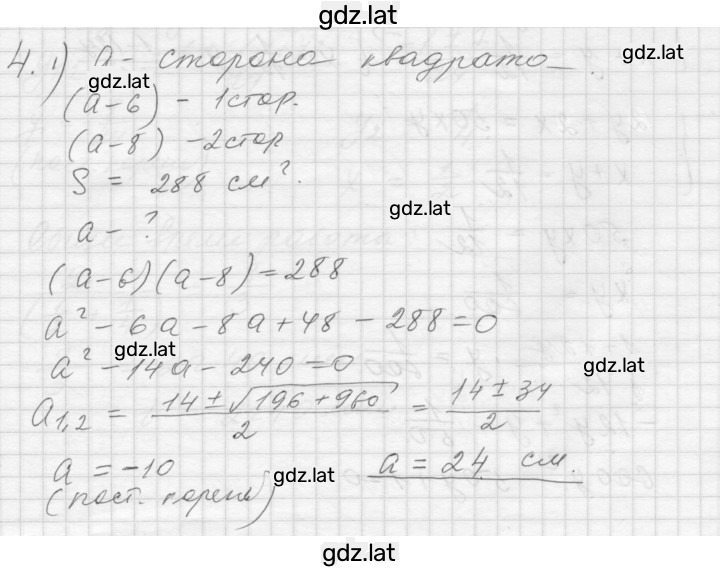 gdz.lat
4. 1) a - сторона квадрата.
gdz.lat
gdz.lat
(a-6) - 1 стор.
(a-8) - 2 стор
S = 288 см².
gdz.lat
a - ?
(a-6)(a-8)=288
a² - 6a - 8a + 48 - 288 = 0
gdz.lat
a² - 14a - 240 = 0
gdz.lat
a₁,₂ = (14 ± √(196 + 960))/2 = (14 ± 34)/2
a = -10
a = 24 см.
gdz.lat
(пост. корень)
gdz.lat